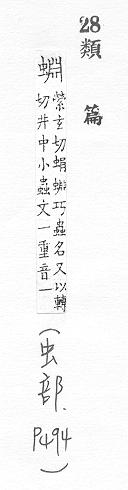 28類篇
蜵
縈玄切蜎蜵巧蟲名又以轉
切井中小蟲文一重音一
(虫部.
P494)